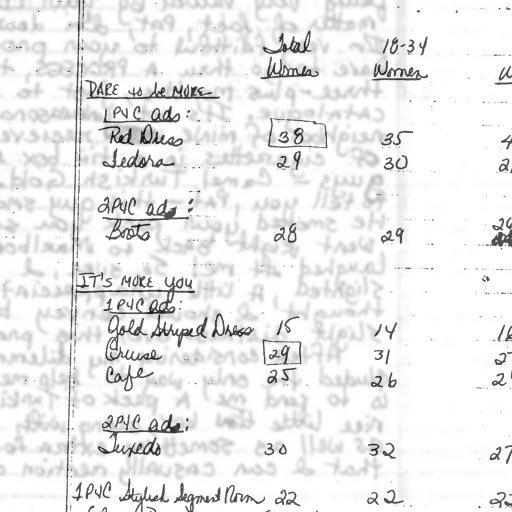 Total 18-34
Women Women W
DARE to be MORE
1P4C ads:
Red Dress 38 35 4
Fedora 29 30 2
2P4C ads:
Boots 28 29 29
IT'S MORE YOU
1P4C ads:
Gold Striped Dress 15 14 16
Cruise 29 31 27
Cafe 25 26 2
2P4C ads:
Tuxedo 30 32 27
1P4C Stylish Segment Norm 22 22 22